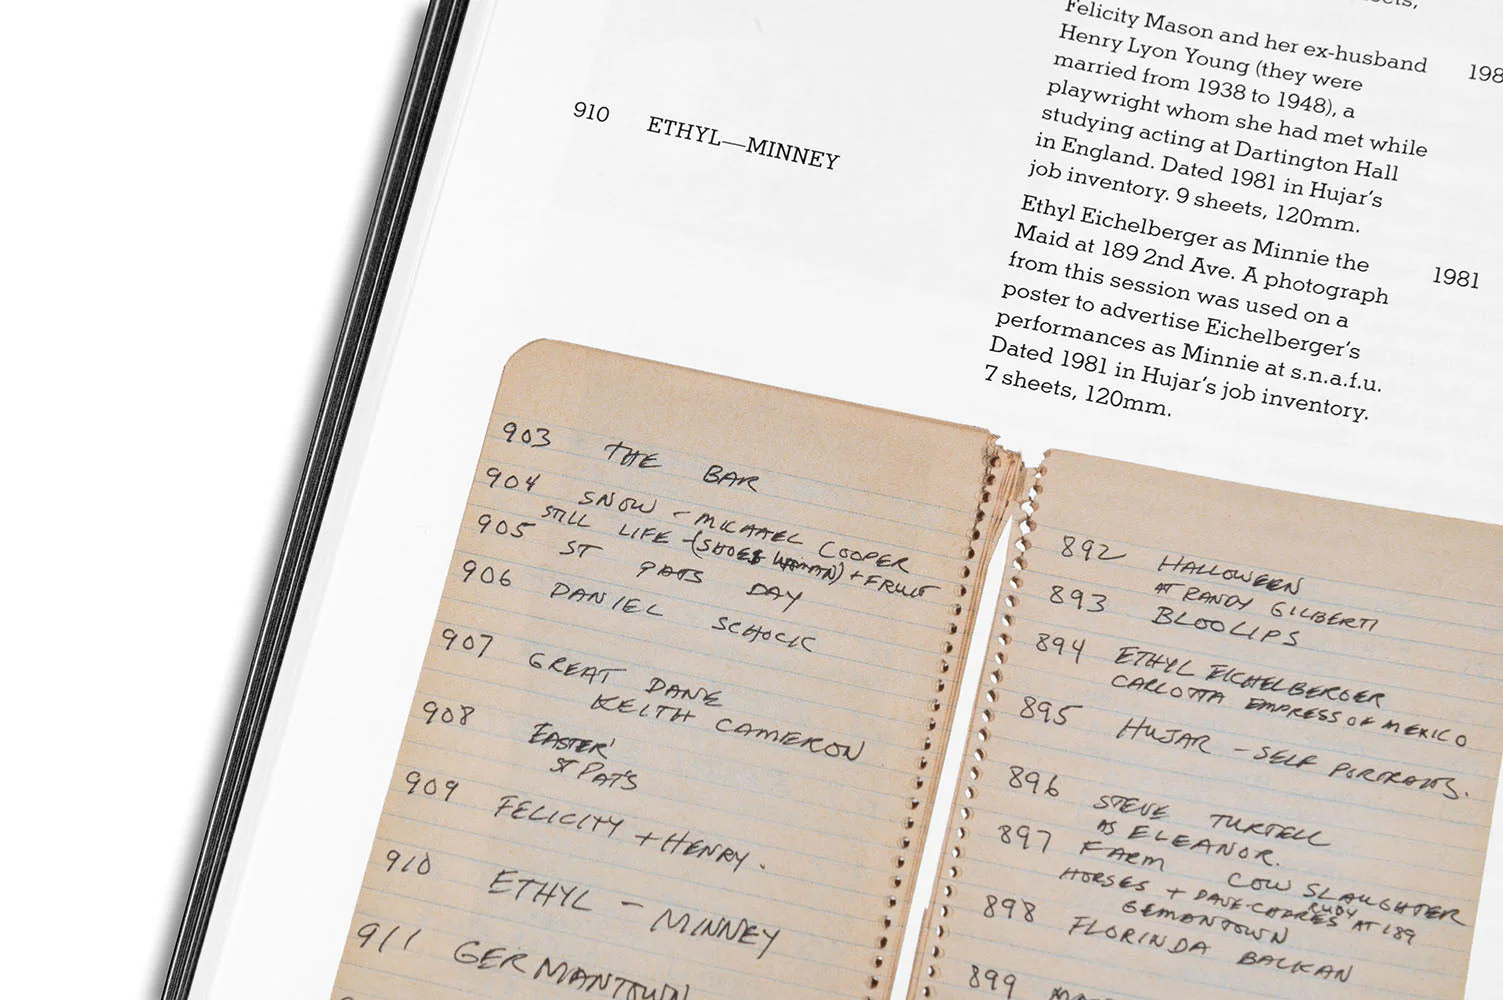 Felicity Mason and her ex-husband
Henry Lyon Young (they were
married from 1938 to 1948), a
playwright whom she had met while
studying acting at Dartington Hall
in England. Dated 1981 in Hujar's
job inventory. 9 sheets, 120mm.
910 ETHYL—MINNEY
Ethyl Eichelberger as Minnie the
Maid at 189 2nd Ave. A photograph
from this session was used on a
poster to advertise Eichelberger's
performances as Minnie at s.n.a.f.u.
Dated 1981 in Hujar's job inventory.
7 sheets, 120mm.
1981
903 THE BAR
904 SNOW - MICHAEL COOPER
STILL LIFE - (SHOES WOMAN) + FRUIT
905 ST PATS DAY
906 DANIEL SCHOCK
907 GREAT DANE
KEITH CAMERON
908 EASTER'
ST PAT'S
909 FELICITY + HENRY.
910 ETHYL - MINNEY
911 GERMANTOWN
892 HALLOWEEN
AT RANDY GILBERTI
893 BLOOLIPS
894 ETHYL EICHELBERGER
CARLOTTA EMPRESS OF MEXICO
895 HUJAR - SELF PORTRAITS.
896 STEVE TURTELL
AS ELEANOR.
897 FARM COW SLAUGHTER
HORSES + DAVE RUDY AT 189
GEMANTOWN
898 FLORINDA BALKAN
899